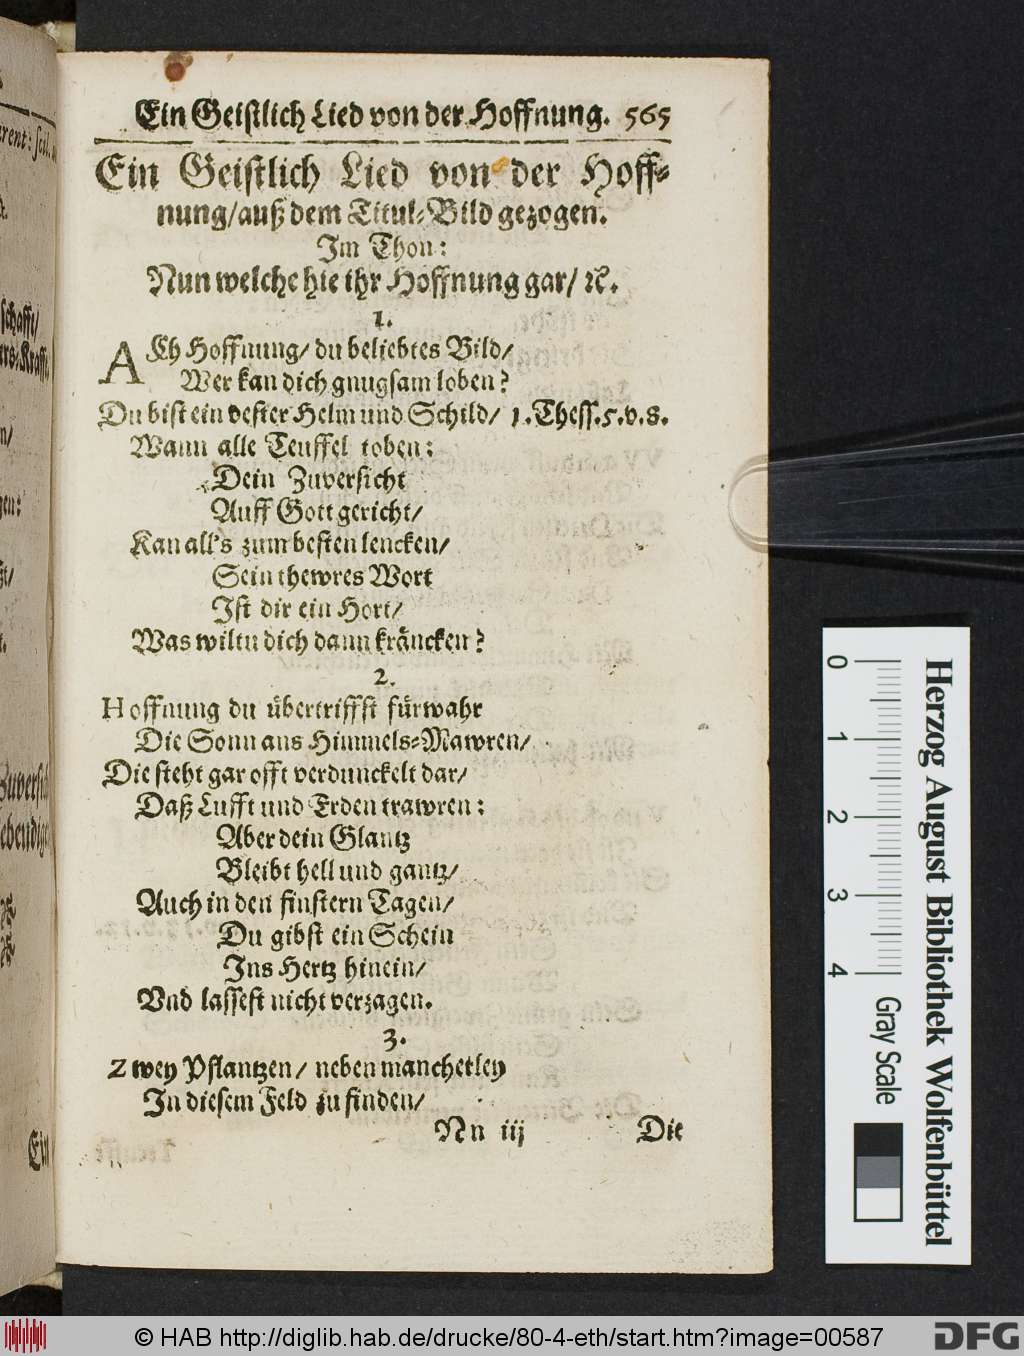 Ein Geistlich Lied von der Hoffnung. 565
Ein Geistlich Lied von der Hoff-
nung/ auß dem Titul-Bild gezogen.
Im Thon:
Nun welche hie ihr Hoffnung gar/ ꝛc.
1.
ACh Hoffnung/ du beliebtes Bild/
Wer kan dich gnugsam loben?
Du bist ein vester Helm und Schild/ 1. Thess. 5. v. 8.
Wann alle Teuffel toben:
Dein Zuversicht
Auff Gott gericht/
Kan all's zum besten lencken/
Sein thewres Wort
Ist dir ein Hort/
Was wiltu dich dann kräncken?
2.
Hoffnung du übertriffst fürwahr
Die Sonn ans Himmels-Mawren/
Die steht gar offt verdunckelt dar/
Daß Lufft und Erden trawren:
Aber dein Glantz
Bleibt hell und gantz/
Auch in den finstern Tagen/
Du gibst ein Schein
Ins Hertz hinein/
Vnd lassest nicht verzagen.
3.
Zwey Pflantzen/ neben mancherley
In diesem Feld zu finden/
Nn iij Die
schafft/
gen:
Ein
0 1 2 3 4
Gray Scale
Herzog August Bibliothek Wolfenbüttel
© HAB http://diglib.hab.de/drucke/80-4-eth/start.htm?image=00587
DFG